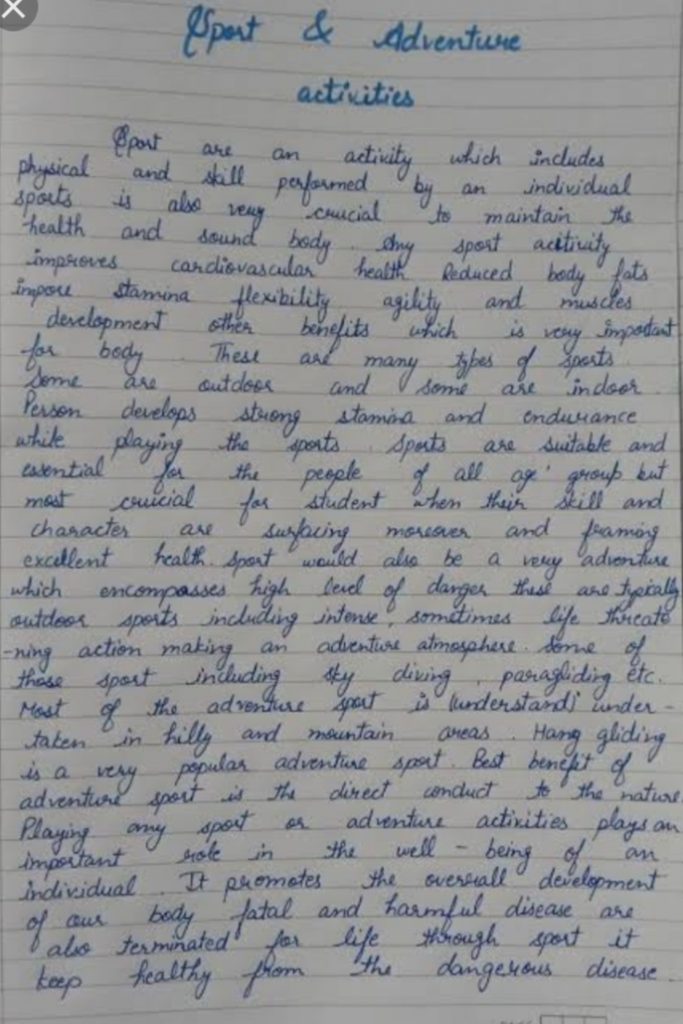 Sport & Adventure
activities
Sport are an activity which includes
physical and skill performed by an individual
sports is also very crucial to maintain the
health and sound body. Any sport actitivity
improves cardiovascular health Reduced body fats
impore stamina flexibility agility and muscles
development other benefits which is very important
for body. These are many types of sports.
Some are outdoor and some are indoor.
Person develops strong stamina and endurance
while playing the sports. Sports are suitable and
essential for the people of all age' group but
most cruicial for student when their skill and
character are surfacing moreover and framing
excellent health. sport would also be a very adventure
which encompasses high level of danger these are typically
outdoor sports including intense, sometimes life threate
-ning action making an adventure atmosphere. Some of
those sport including sky diving, paragliding etc.
Most of the adventure sport is (understand) under-
taken in hilly and mountain areas. Hang gliding
is a very popular adventure sport. Best benefit of
adventure sport is the direct conduct to the nature.
Playing any sport or adventure activities plays an
important role in the well-being of an
individual. It promotes the overall development
of our body fatal and harmful disease are
also terminated for life through sport it
keep healthy from the dangerous disease.